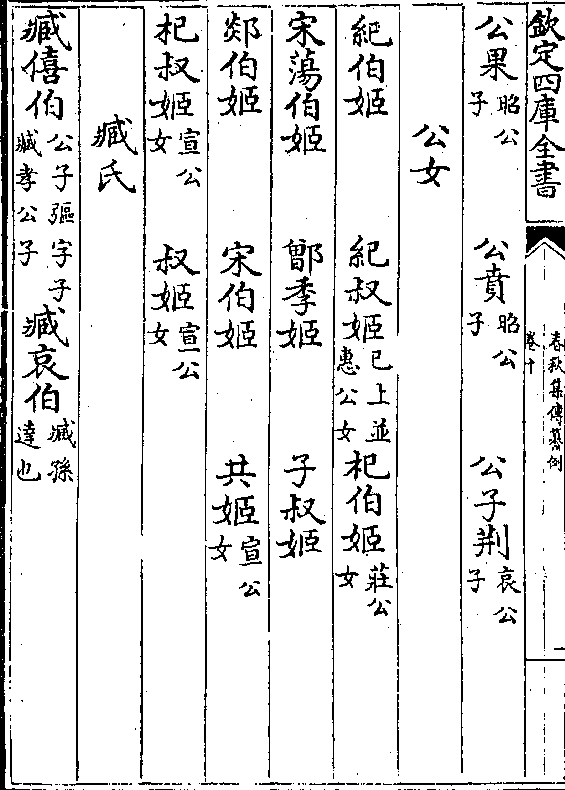 欽定四庫全書
春秋集傳纂例
卷十
一
公果昭公子　公賁昭公子　公子荆哀公子
公女
紀伯姬　紀叔姬已上並惠公女　杞伯姬莊公女
宋蕩伯姬　鄫季姬　子叔姬
郯伯姬　宋伯姬　共姬宣公女
杞叔姬宣公女　叔姬宣公女
臧氏
臧僖伯公子彄字子臧孝公子　臧哀伯臧孫達也